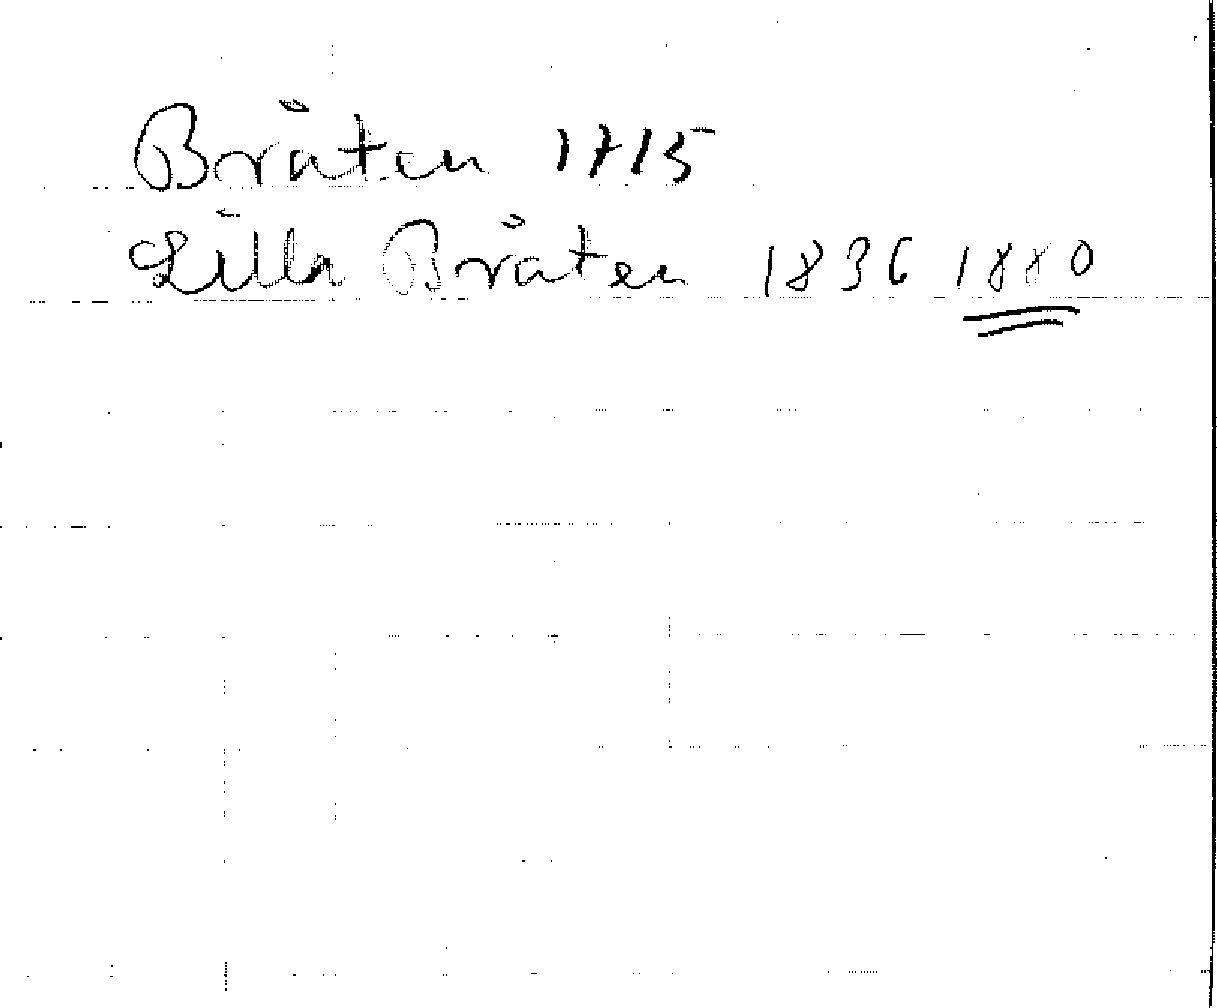 Bråten 1715
Lilla Bråten 1836 1880